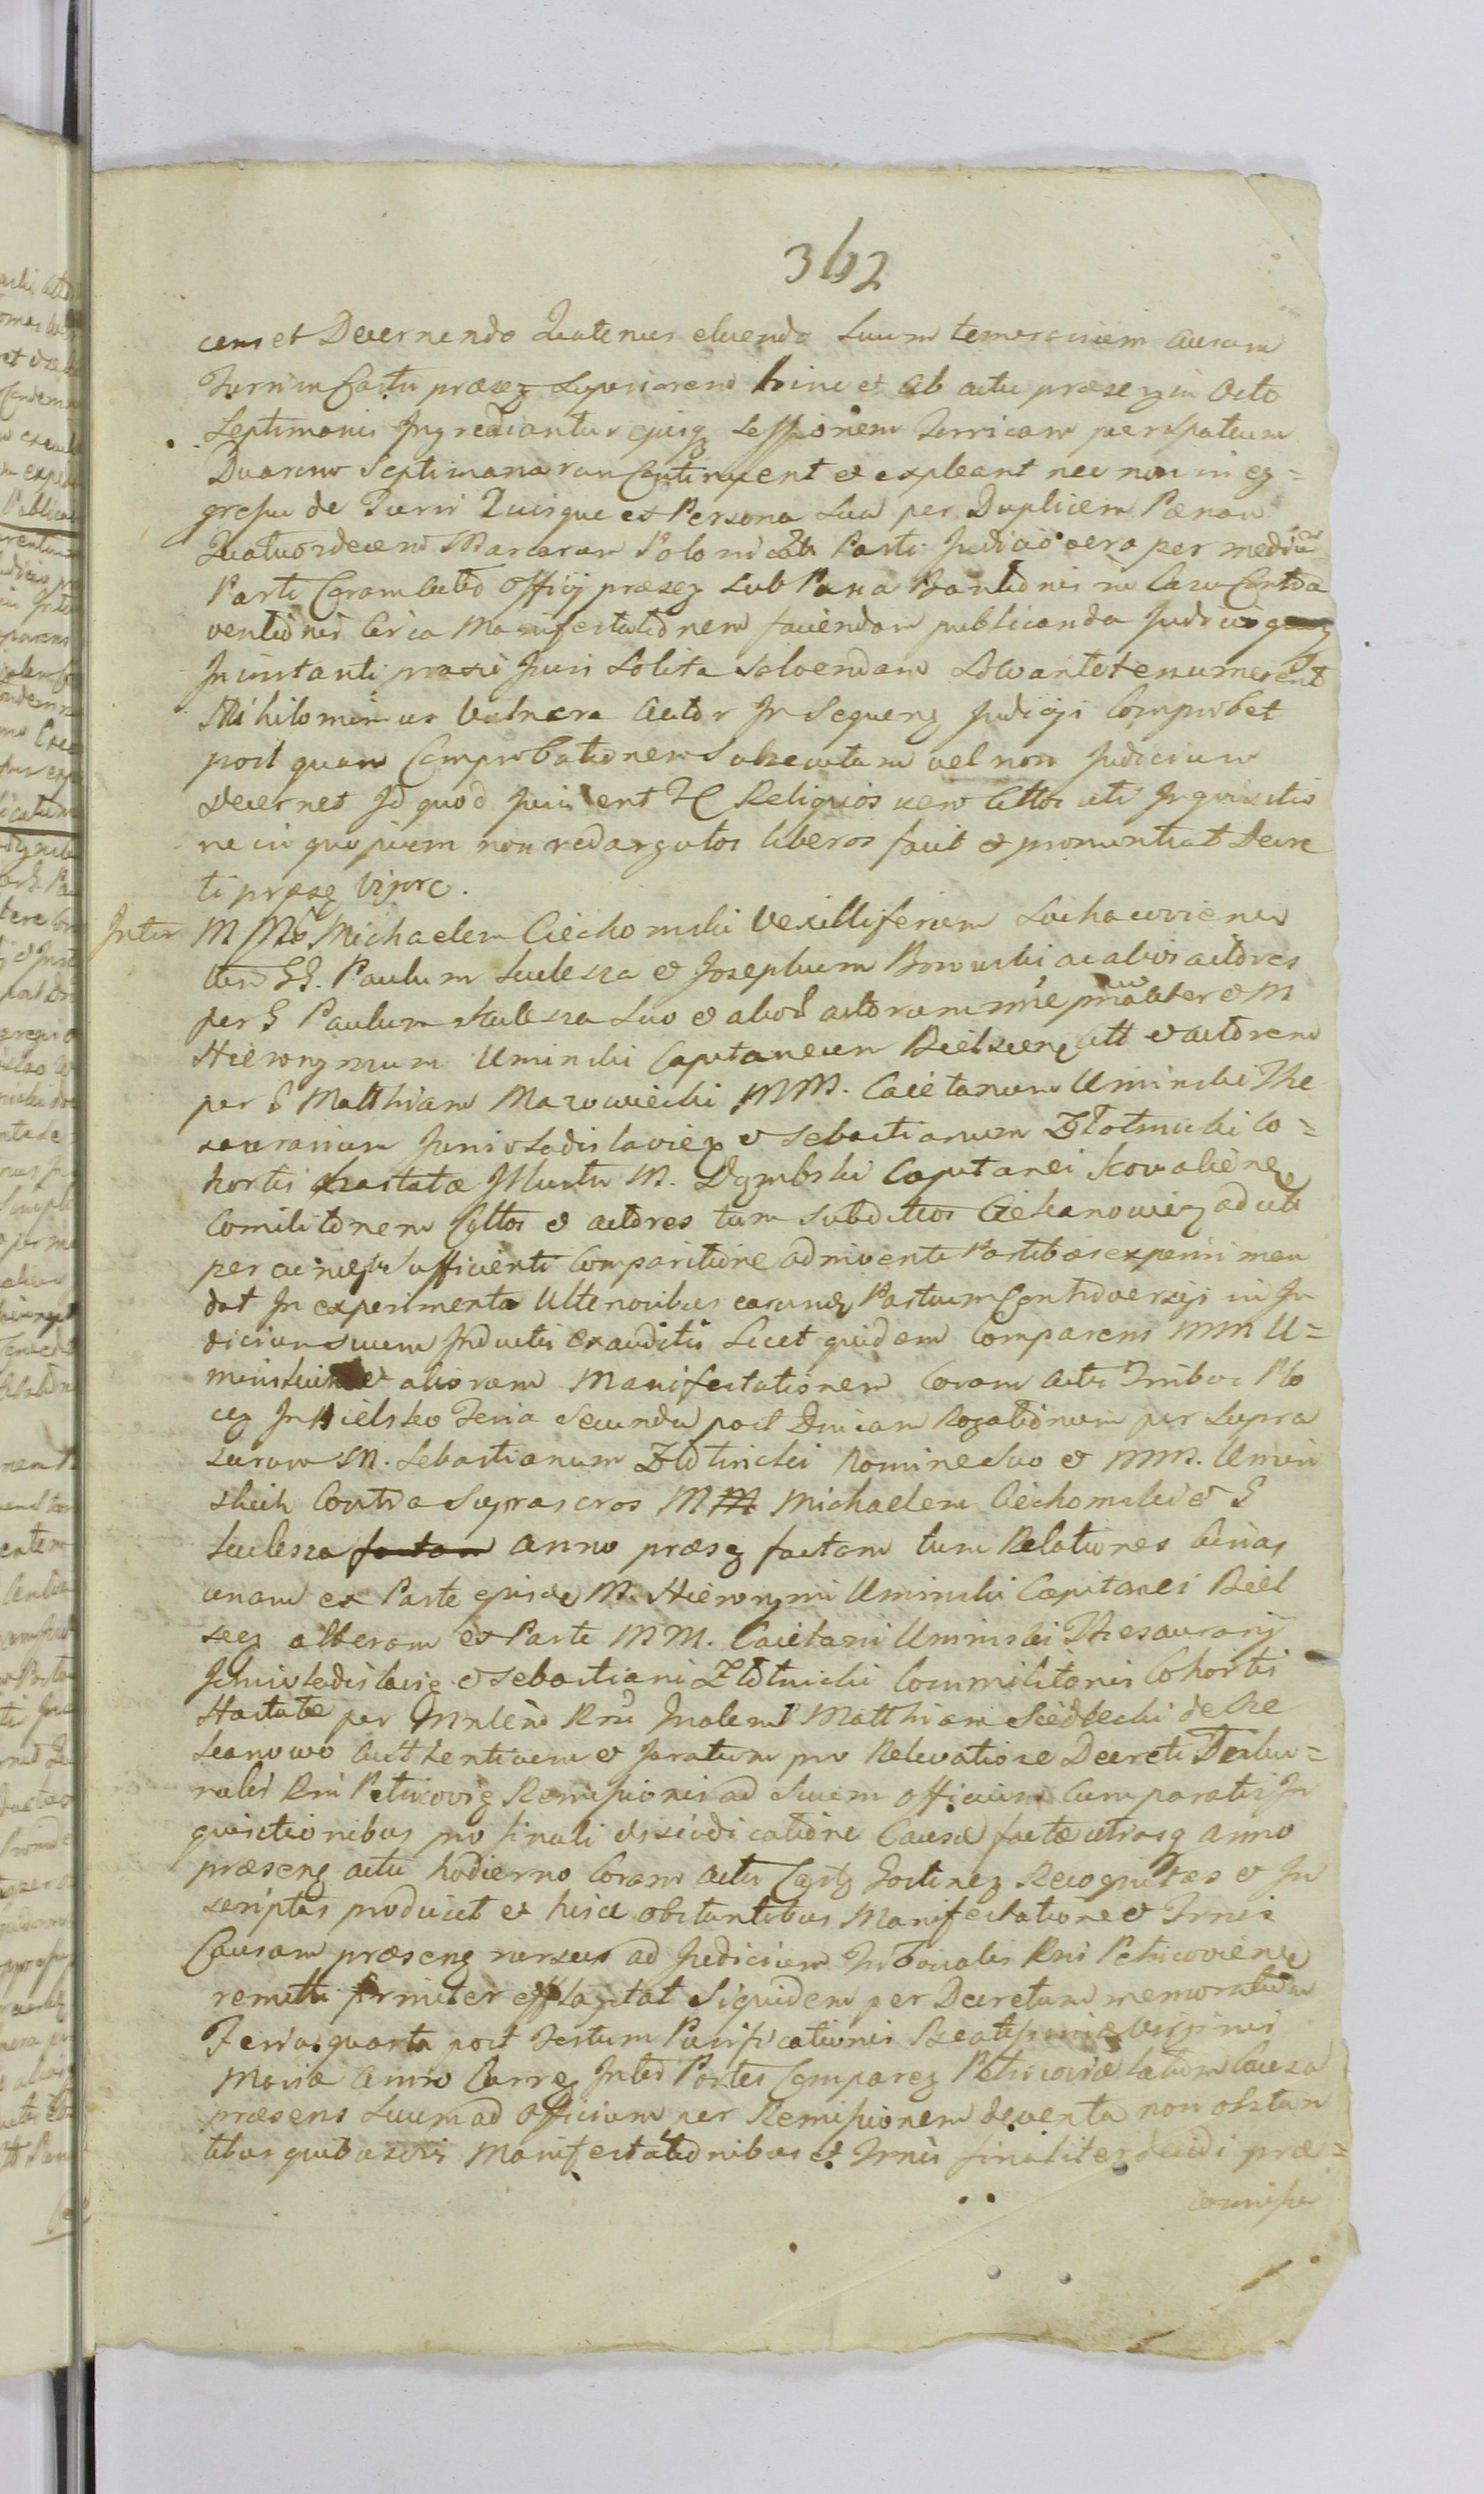 362
cens et Decernendo Quatenus eluendo Suum temerarium ausum
Turrim Castri præseq Superiorem hinc et ab actu præseq in Octo
Septimanis Ingrediantur ejusq Sessionem Turricam per Spatium
Duarum Septimanarum Continuent et expleant nec non in eg=
gressu de Turri Quisque ex Persona Sua per Duplicem Pænam
Quatuordecem Marcarum Polonical Parti Judicio vero per mediũ
Parti Coram Actis Officij præseq Sub Pæna Bannitionis in Casu Contra
ventionis Circa Manifestationem faciendam publicanda Judicio
In instanti prævie Juri Solita Solvendam Solvant et enumerent
Nihilominus Vulnera Actor In Sequenq Judicijs Comprobet
post quam Comprobationem Subsecutam vel non Judicium
Decernet Id quod Juris ent Religiosos vero Cittos uti Inquisitio
ne in quo piam non redargutos liberos facit et pronuntiat Decre
ti præseq Vigore.
Inter MM Michaelem Ciechomski Vexilliferum Sochacovienẽ
tum GG. Paulum Szulessa et Josephum Borowski ac alios actores
per G Paulum Szulessa Suo et aliorũ actorum nñe prñaliter et M
Hieronymum Uminski Capitaneum Bielscenẽ Citt et actorem
per G Matthiam Mazowiecki MM. Caietanum Uminski The
saurarium Junivladislavieq et Sebastianum Złotnicki Co=
hortis Hastatæ Illustr M. Dąmbski Capitanei Kowaliẽnẽ
Comilitonem Cittos et actores tum Subditos Ciekanowieq ad uti
per ac niese Sufficienti Comparitione admoventi Partibus experiri man
dat In experimento Ulterioribus earundẽ Partium Controversijs in Ju
dicium Suum Inductis Exauditis Licet quidem Comparens MM U=
minskich et aliorum Manifestationem Coram actis Tribus Plo
ceq In Bielsko Feria Secunda post Dnicam Rogationum per Supra
Scrum M. Sebastianum Złotnicki Nomine Suo et MM. Umin
skich Contra Suprascros MM Michaelem Ciechomski et G
Szulessa factam anno præseq factam tum Relationes Binas
unam ex Parte ejusdẽ M. Hieronymi Uminski Capitanei Biel
sceq alteram ex Parte MM. Caietani Uminski Thesaurarij
Juniwladislavie et Sebastiani Złotnicki Commilitonis Cohortis
Hastatæ per Matthiam Siedlecki de
Authenticum et Juratum pro Relevatione Decreti Tribu=
nalis Rni Petricovieq Remissionis ad Suum Officium Cum paratis In
quisitionibus pro finali disiudicatione Causæ factæ utrasq anno
præsenq actu hodierno Coram actis Castq Gostineq Recognitas et In
scriptis produxit et hisce obstantibus Manifestatione et Trnis
Causam præsenq rursus ad Judicium Tribunalis Rni Petricovienẽ
remitti firmiter efflagitat Siquidem per Decretum memoratum
Feria quarta post Festum Purificationis Beatissimæ Virginis
Mariæ Anno Curreq Inter Partes Compareq Petricoviæ latum Causa
præsens Suum ad Officium per Remissionem deventa non obstan
tibus quibusvis Manifestationibus et Trnis finaliter decidi præ=
commissa